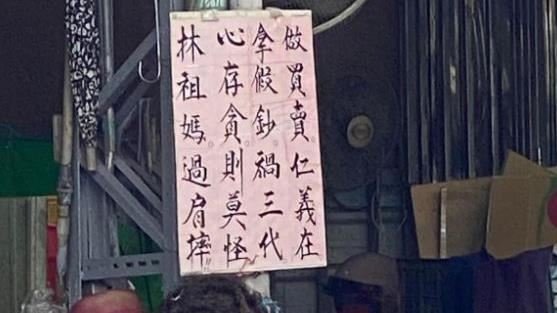 做買賣仁義在
拿假鈔禍三代
心存貪則莫怪
林祖媽過肩摔!!